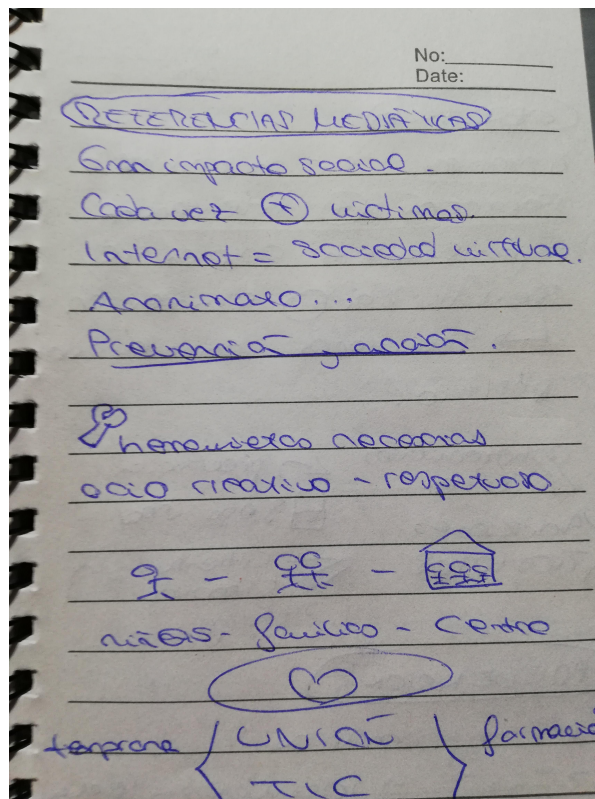 No:
Date:
REFERENCIAS MEDIÁTICAS
Gran impacto social.
Cada vez + víctimas.
Internet = Sociedad virtual.
Anonimato...
Prevención y acción.
herramientas necesarias
ocio creativo - respetuoso
niñ@s - familia - Centro
temprana { UNIÓN } formació
TIC